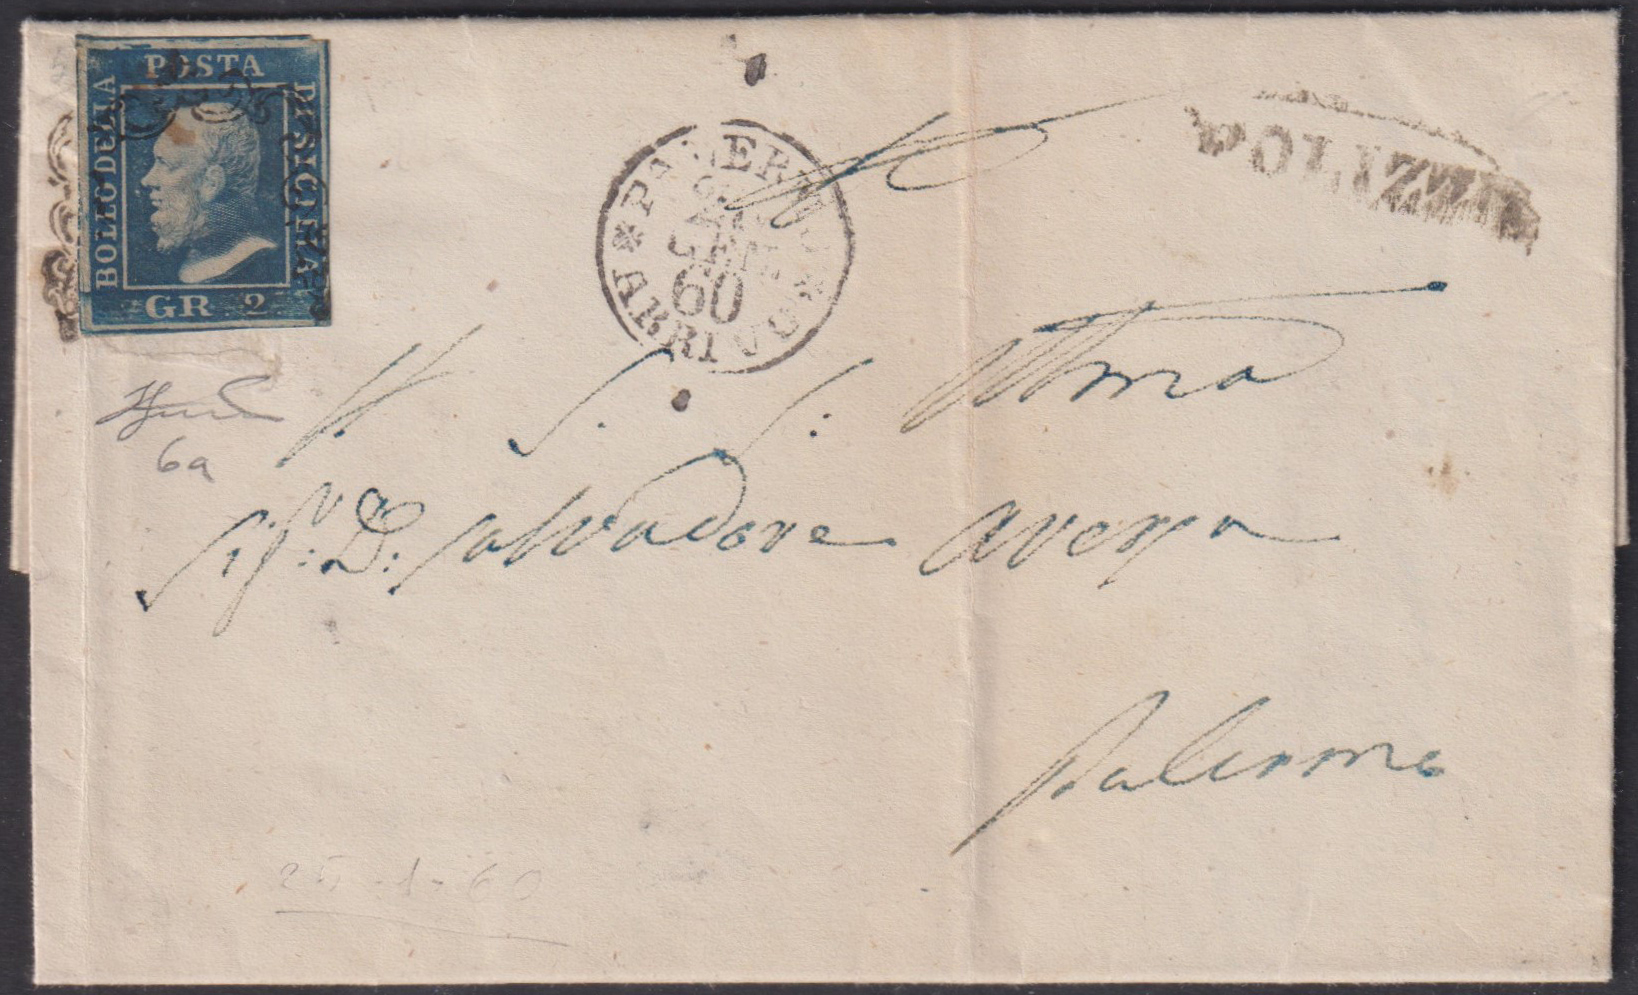 BOLLO DELLA
POSTA
DI SICILIA
GR. 2
PALERMO
GEN
60
ARRIVO
POLIZZI
A. S. S. Illma
Sig.r D: Salvadore Aversa
Palermo
6a
25-1-60